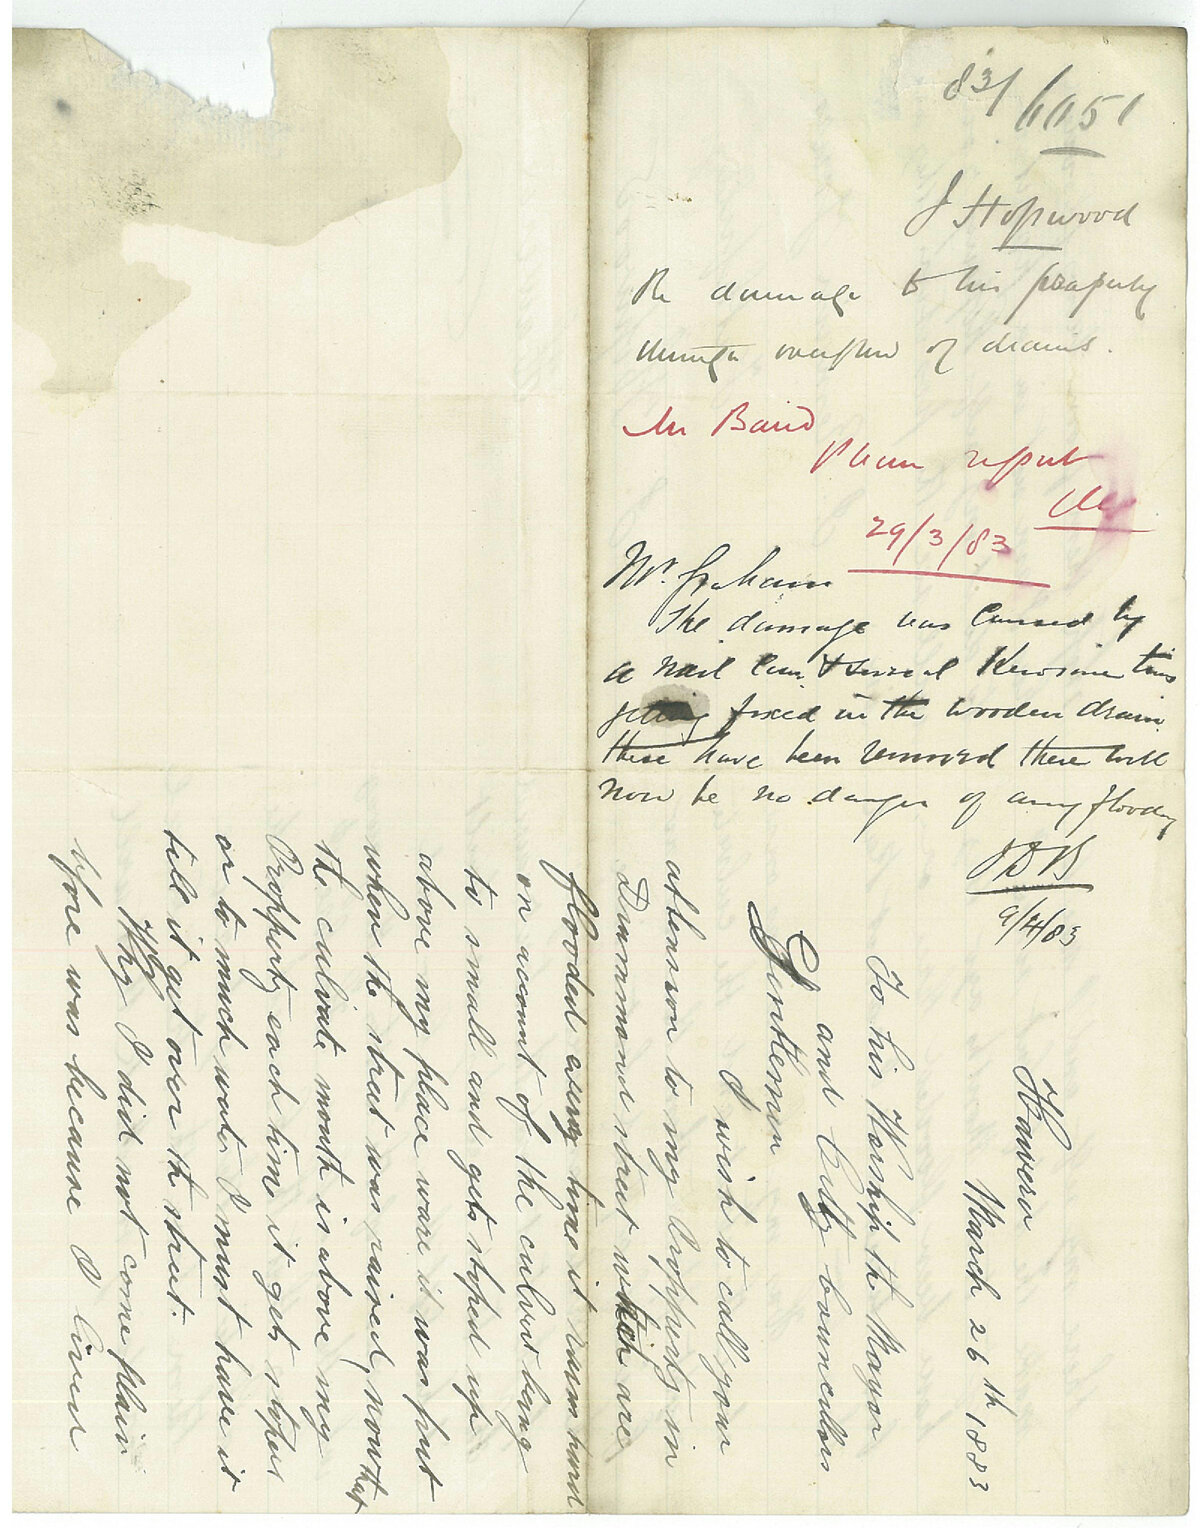 83/6051
J Hopwood
Re damage to his property
through overflow of drains.
Mr Baird
Please report
29/3/83
Mr. Graham
The damage was caused by
a nail can & several Kerosine tins
getting fixed in the wooden drain
these have been removed there will
now be no danger of any flooding
JDB
9/4/83
Hawera
March 26th 1883
To his Worship the Mayor
and Citty Councillors
Gentlemen
I wish to call your
atension to my Propperty in
Drummond street which are
flooded every time it rains hard
on account of the culvert being
to small and gets stoped up
above my place ware it was put
when the street was raised, now that
the culvate mouth is above my
Propperty each time it gets stoped
or to much water I must have it
till it get over the street.
Why I did not complain
before was because I lived